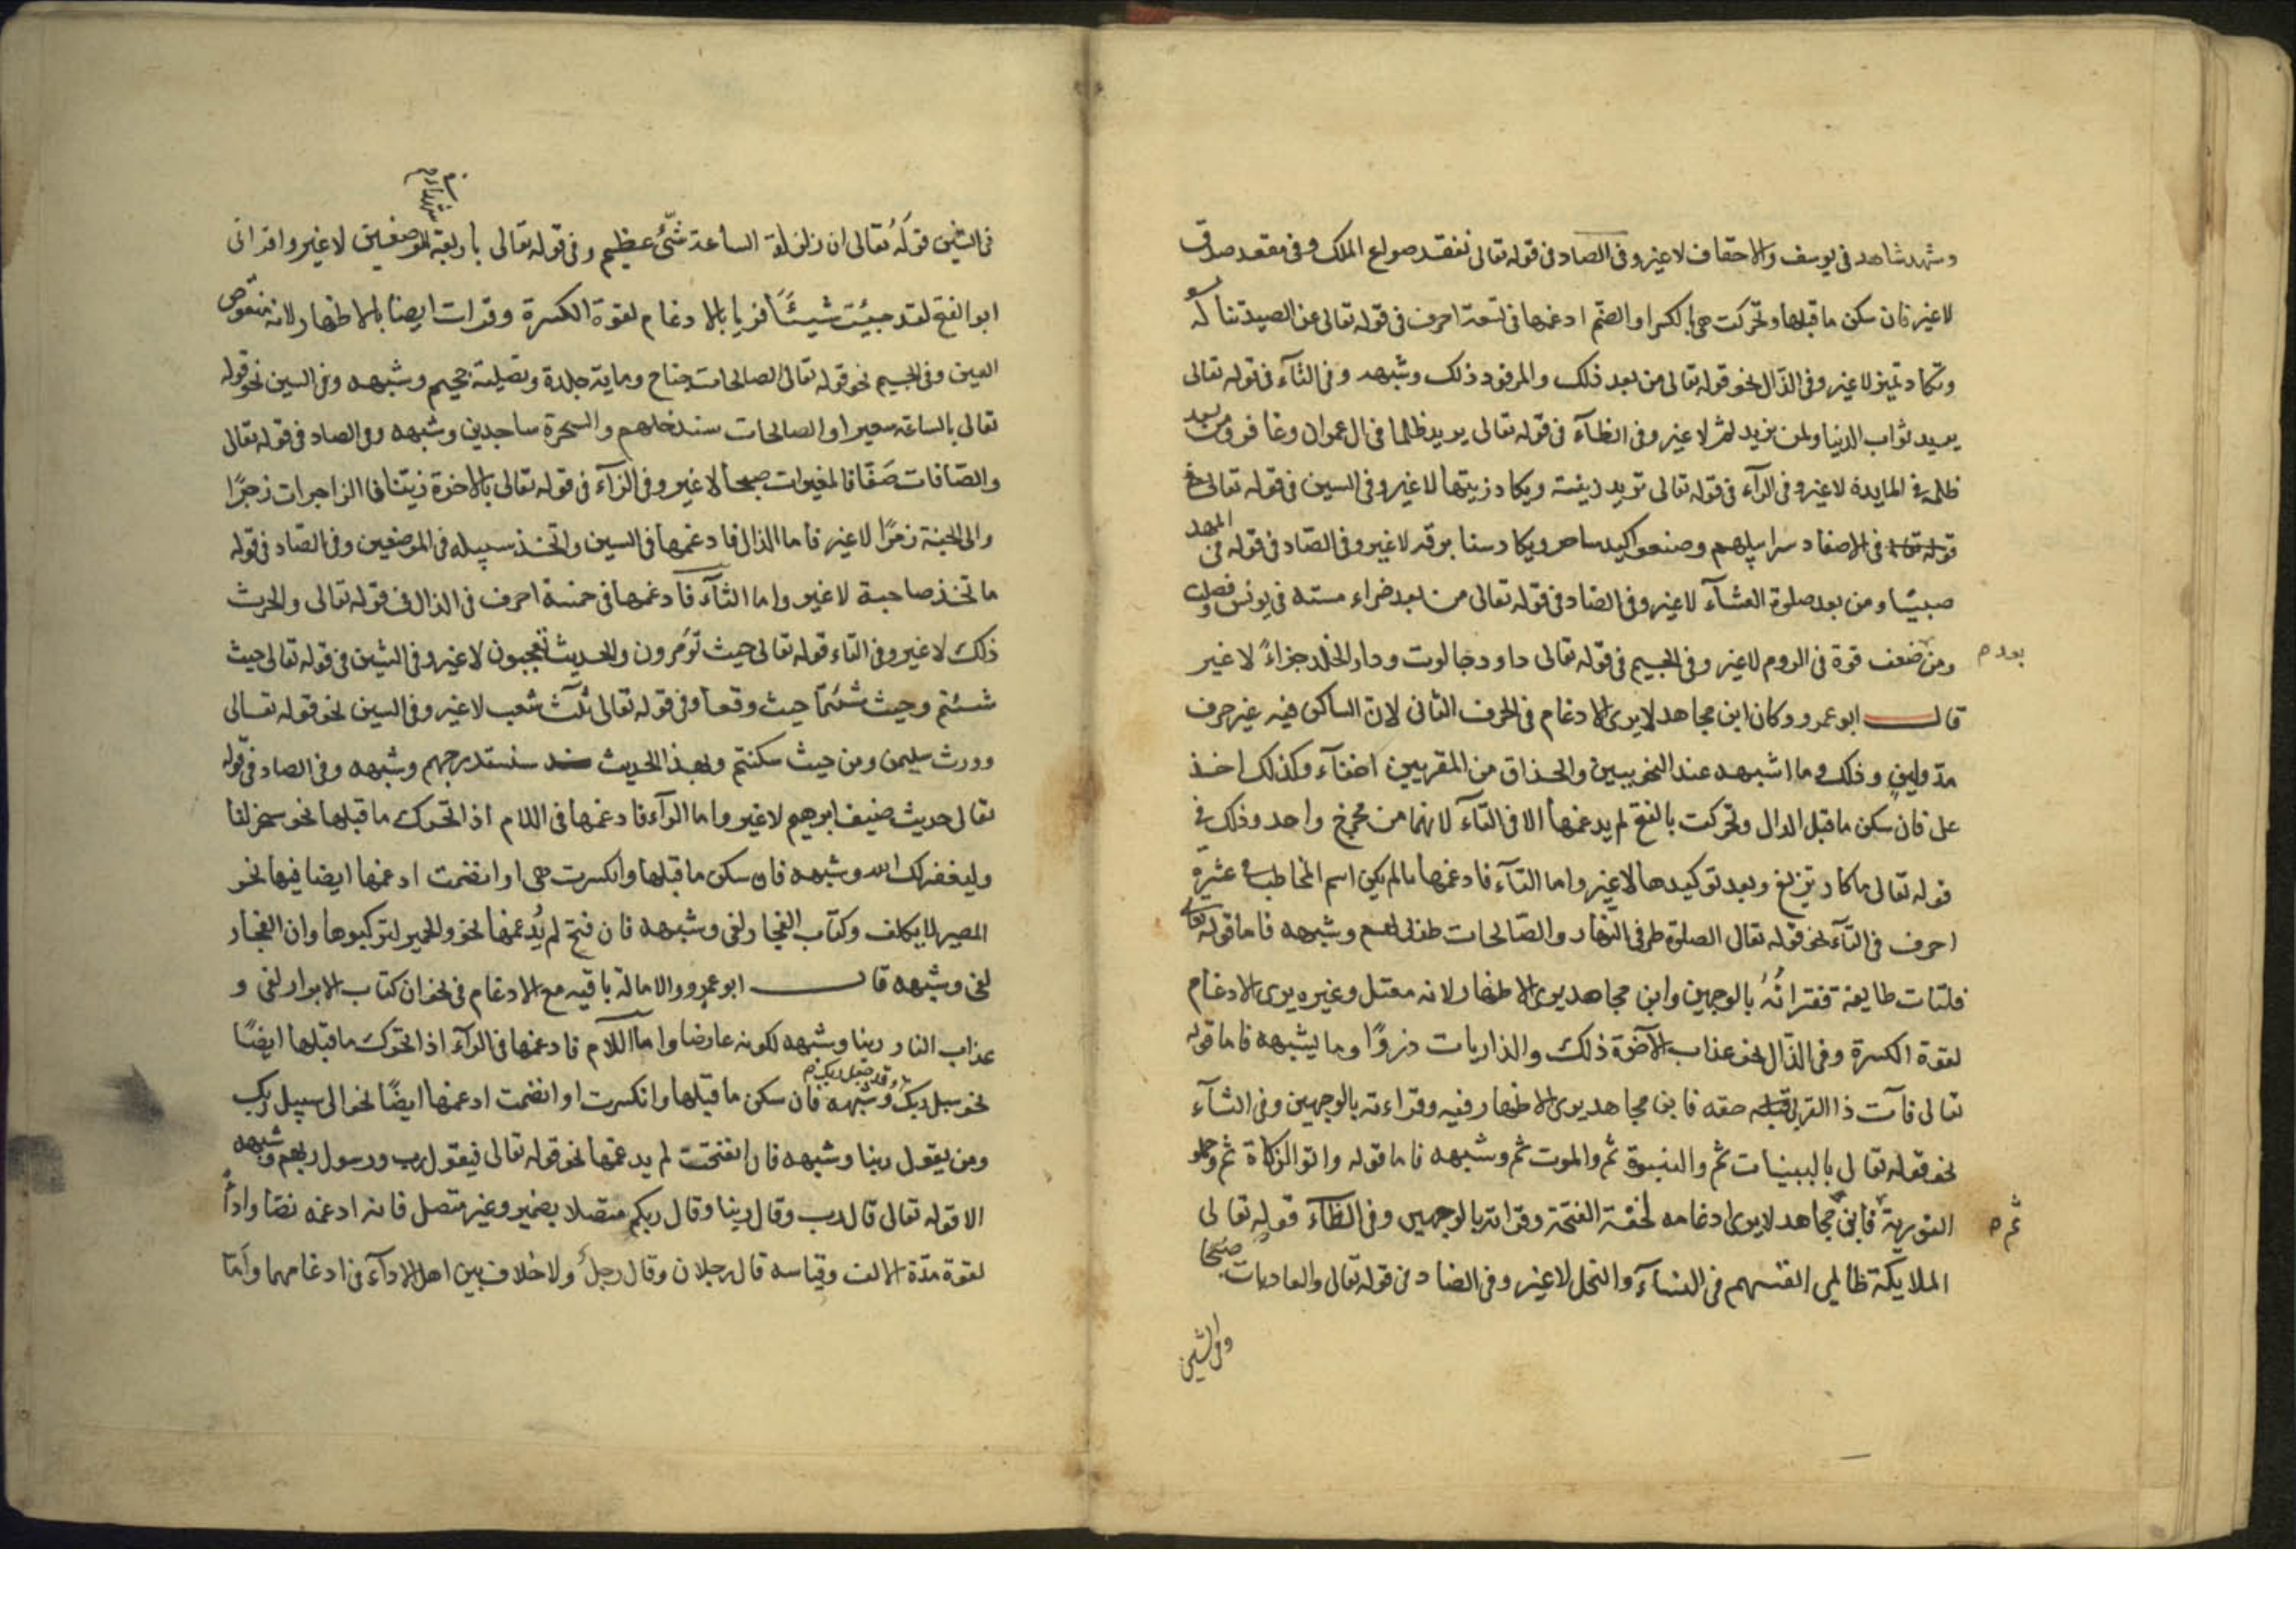 وشهد شاهد في يوسف والاحقاف لا غير وفي الصاد في قوله تعالى نفقد صواع الملك وفي مقعد صدق
لا غير فان سكن ما قبلها وتحركت هي بالكسر او الضم ادغمها في تسعة احرف في قوله تعالى من الصيد تناله
وتكاد تميز لا غير وفي الذال نحو قوله تعالى من بعد ذلك والمرفود ذلك وشبهه وفي الثآء في قوله تعالى
يريد ثواب الدنيا ولمن نريد ثم لا غير وفي الظآء في قوله تعالى يريد ظلما في ال عمران وغافر ومن بعد
ظلمه في المايدة لا غير وفي الزآء في قوله تعالى تريد زينة ويكاد زيتها لا غير وفي السين في قوله تعالى
في الاصفاد سرابيلهم وصنعوا كيد ساحر ويكاد سنا برقه لا غير وفي الصاد في قوله في المهد
صبيا ومن بعد صلوة العشآء لا غير وفي الضاد في قوله تعالى من بعد ضراء مسته في يونس وفصلت
ومن ضعف قوة في الروم لا غير وفي الجيم في قوله تعالى داود جالوت ودار الخلد جزاءً لا غير
بعد م
قال ابو عمرو وكان ابن مجاهد لا يرى الادغام في الحرف الثاني لان الساكن فيه غير حرف
مدّ ولين وذلك وما اشبهه عند النحويين والحذاق من المقريين اخفآء وكذلك اخذ
على فان سكن ما قبل الدال وتحركت بالفتح لم يدغمها الا في التآء لانهما من مخرج واحد وذلك في
قوله تعالى ما كاد تزيغ وبعد توكيدها لا غير واما التآء فادغمها ما لم يكن اسم المخاطب في عشرة
احرف في الطآء نحو قوله تعالى الصلوة طرفي النهار والصالحات طوبى لهم وشبهه فاما قوله تعالى
فلتات طايفة فقراتُهُ بالوجهين وابن مجاهد يرى الاظهار لانه معتل وغيره يرى الادغام
لقوة الكسرة وفي الذال نحو عذاب الآخرة ذلك والذاريات ذروًا وما يشبهه فاما قوله
تعالى فآت ذا القربى حقه فابن مجاهد يرى الاظهار فيه وقراءته بالوجهين وفي الثآء
نحو قوله تعالى بالبينات ثم والنبوة ثم والموت ثم وشبهه فاما قوله واتوا الزكاة ثم وحملوا
التورية فابن مجاهد لا يرى ادغامه لخفة الفتحة وقراته بالوجهين وفي الظآء قوله تعالى
ثم م
الملايكة ظالمي انفسهم في النسآء والنحل لا غير وفي الضاد في قوله تعالى والعاديات ضبحا
وفي الشين
في الشين قولَهُ تعالى ان زلزلة الساعة شيءٌ عظيم وفي قوله تعالى باربعة الموضعين لا غير واقراني
ابو الفتح لقد جيئت شيئًا فريا بالادغام لقوة الكسرة وقرات ايضا بالاظهار لانه منقوص
العين وفي الجيم نحو قوله تعالى الصالحات جناح وماية جلدة وتصلية جحيم وشبهه وفي السين نحو قوله
تعالى بالساعة سعيرا والصالحات سندخلهم والسحرة ساجدين وشبهه وفي الصاد في قوله تعالى
والصّافات صَفّا فالمغيرات صبحا لا غير وفي الزآء في قوله تعالى بالاخرة زينا فالزاجرات زجرًا
والى الجنة زمرًا لا غير فاما الذال فادغمها في السين واتخذ سبيله في الموضعين وفي الصّاد في قوله
ما تخذ صاحبة لا غير واما الثآء فادغمها في خمسة احرف في الذال في قوله تعالى والحرث
ذلك لا غير وفي التاء قوله تعالى حيث تؤمرون والحديث تعجبون لا غير وفي الشين في قوله تعالى حيث
شئتم وحيث شئتما حيث وقعا وفي قوله تعالى ثلث شعب لا غير وفي السين نحو قوله تعالى
وورث سليمن ومن حيث سكنتم وبهذا الحديث سنستدرجهم وشبهه وفي الصاد في قوله
تعالى حديث ضيف ابرهيم لا غير واما الرآء فادغمها في اللام اذا تحرك ما قبلها نحو سخر لنا
وليغفر لك الله وشبهه فان سكن ما قبلها وانكسرت هي او انضمت ادغمها ايضا فيها نحو
المصير لا يكلف وكتاب الفجار لفي وشبهه فان فتح لم يُدغمها نحو والحمير لتركبوها وان الفجار
لفي وشبهه قال ابو عمرو والامالة باقية مع الادغام في نحو ان كتاب الابرار لفي و
عذاب النار ربنا وشبهه لكونه عارضا واما اللام فادغمها في الرآء اذا تحرك ما قبلها ايضًا
نحو سبل ربك وشبهه فان سكن ما قبلها وانكسرت او انضمت ادغمها ايضًا نحو الى سبيل ربك
قد جعل ربك م
ومن يقول ربنا وشبهه فان انفتحت لم يدغمها نحو قوله تعالى فيقول رب ورسول ربهم وشبهه
الا قوله تعالى قال رب وقال ربنا وقال ربكم متصلا بضمير وغير متصل فانه ادغمه نصّا واداً
لقوة مدّة الالف وقياسه قال رجلان وقال رجلٌ ولا خلاف بين اهل الادآء في ادغامهما وامّا